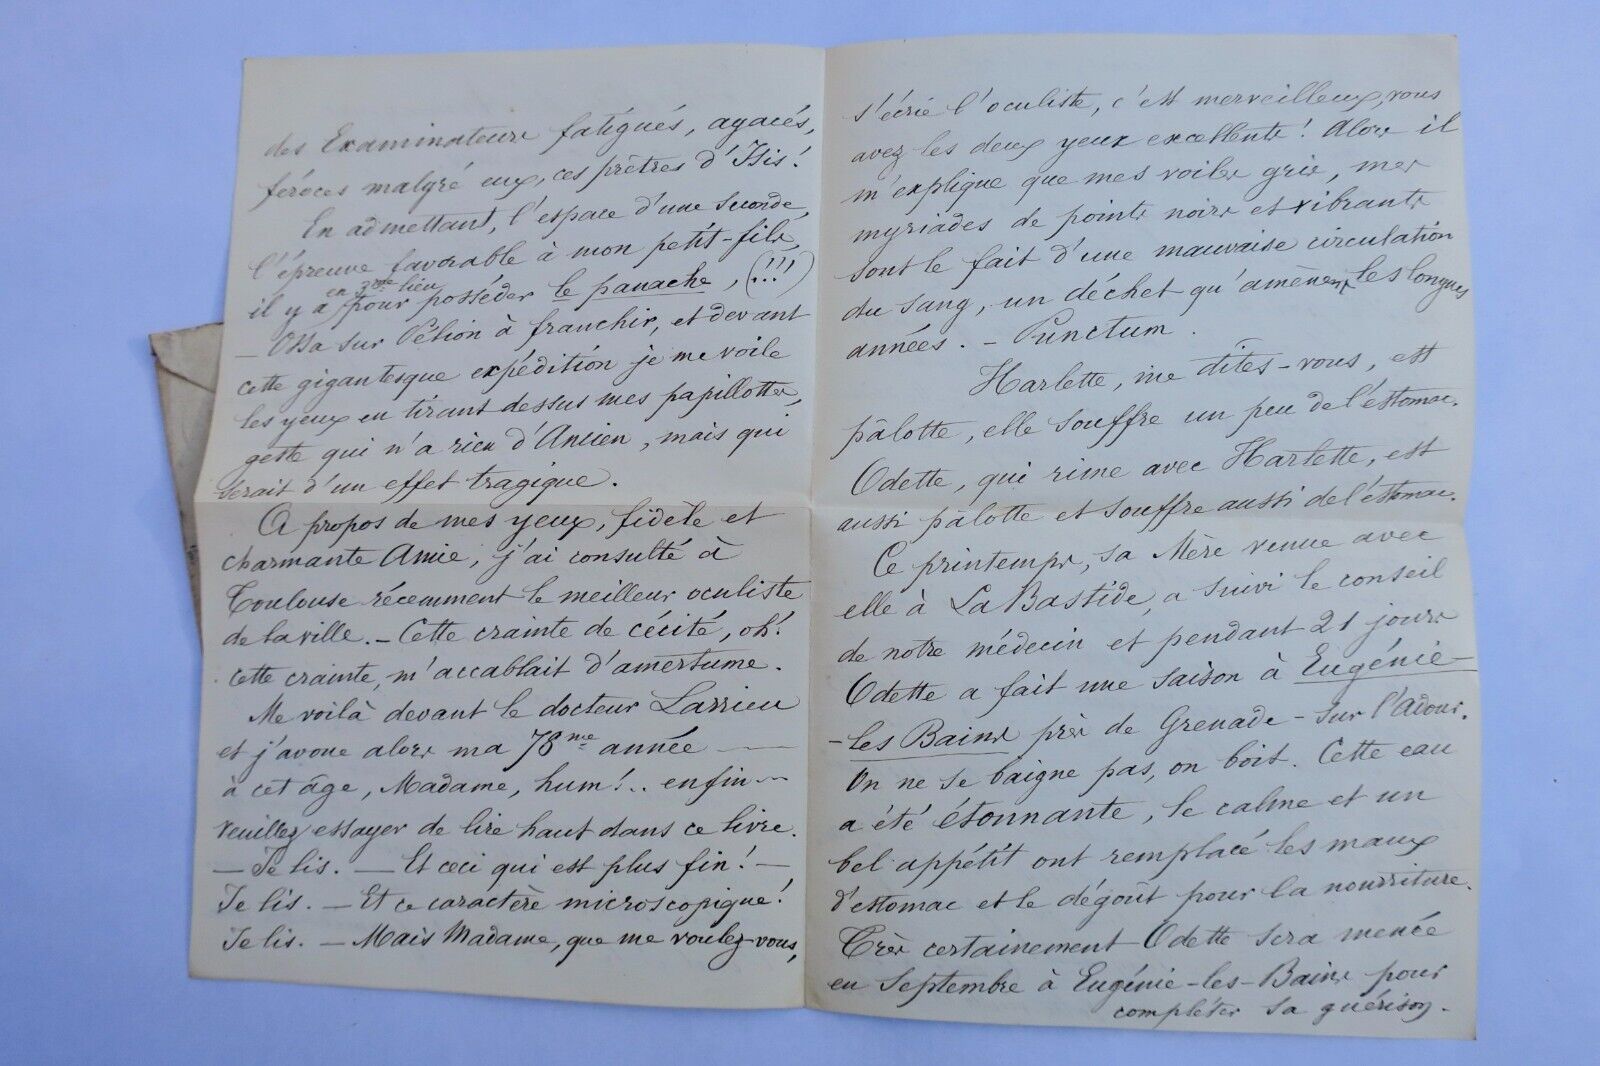 des Examinateurs fatigués, agacés,
féroces malgré eux, ces prêtres d'Isis!
En admettant, l'espace d'une seconde,
l'épreuve favorable à mon petit-fils,
en 3me lieu
il y a pour posséder le panache, (!!!)
— Ossa sur Pélion à franchir, et devant
cette gigantesque expédition je me voile
les yeux en tirant dessus mes papillottes,
geste qui n'a rien d'Ancien, mais qui
serait d'un effet tragique.
A propos de mes yeux, fidèle et
charmante Amie, j'ai consulté à
Toulouse récemment le meilleur oculiste
de la ville. — Cette crainte de cécité, oh!
cette crainte, m'accablait d'amertume.
Me voilà devant le docteur Larrieu
et j'avoue alors ma 78me année —
à cet âge, Madame, hum!.. enfin —
veuillez essayer de lire haut dans ce livre.
— Je lis. — Et ceci qui est plus fin! —
Je lis. — Et ce caractère microscopique!
Je lis. — Mais Madame, que me voulez-vous,
s'écrie l'oculiste, c'est merveilleux, vous
avez les deux yeux excellents! Alors il
m'explique que mes voiles gris, mes
myriades de points noirs et vibrants
sont le fait d'une mauvaise circulation
du sang, un déchet qu'amènent les longues
années. — Punctum.
Harlette, me dites-vous, est
pâlotte, elle souffre un peu de l'estomac.
Odette, qui rime avec Harlette, est
aussi pâlotte et souffre aussi de l'estomac.
Ce printemps, sa Mère venue avec
elle à La Bastide, a suivi le conseil
de notre médecin et pendant 21 jours
Odette a fait une saison à Eugénie-
-les Bains près de Grenade-sur l'Adour.
On ne se baigne pas, on boit. Cette eau
a été étonnante, le calme et un
bel appétit ont remplacé les maux
d'estomac et le dégoût pour la nourriture.
Très certainement Odette sera menée
en Septembre à Eugénie-les-Bains pour
compléter sa guérison.